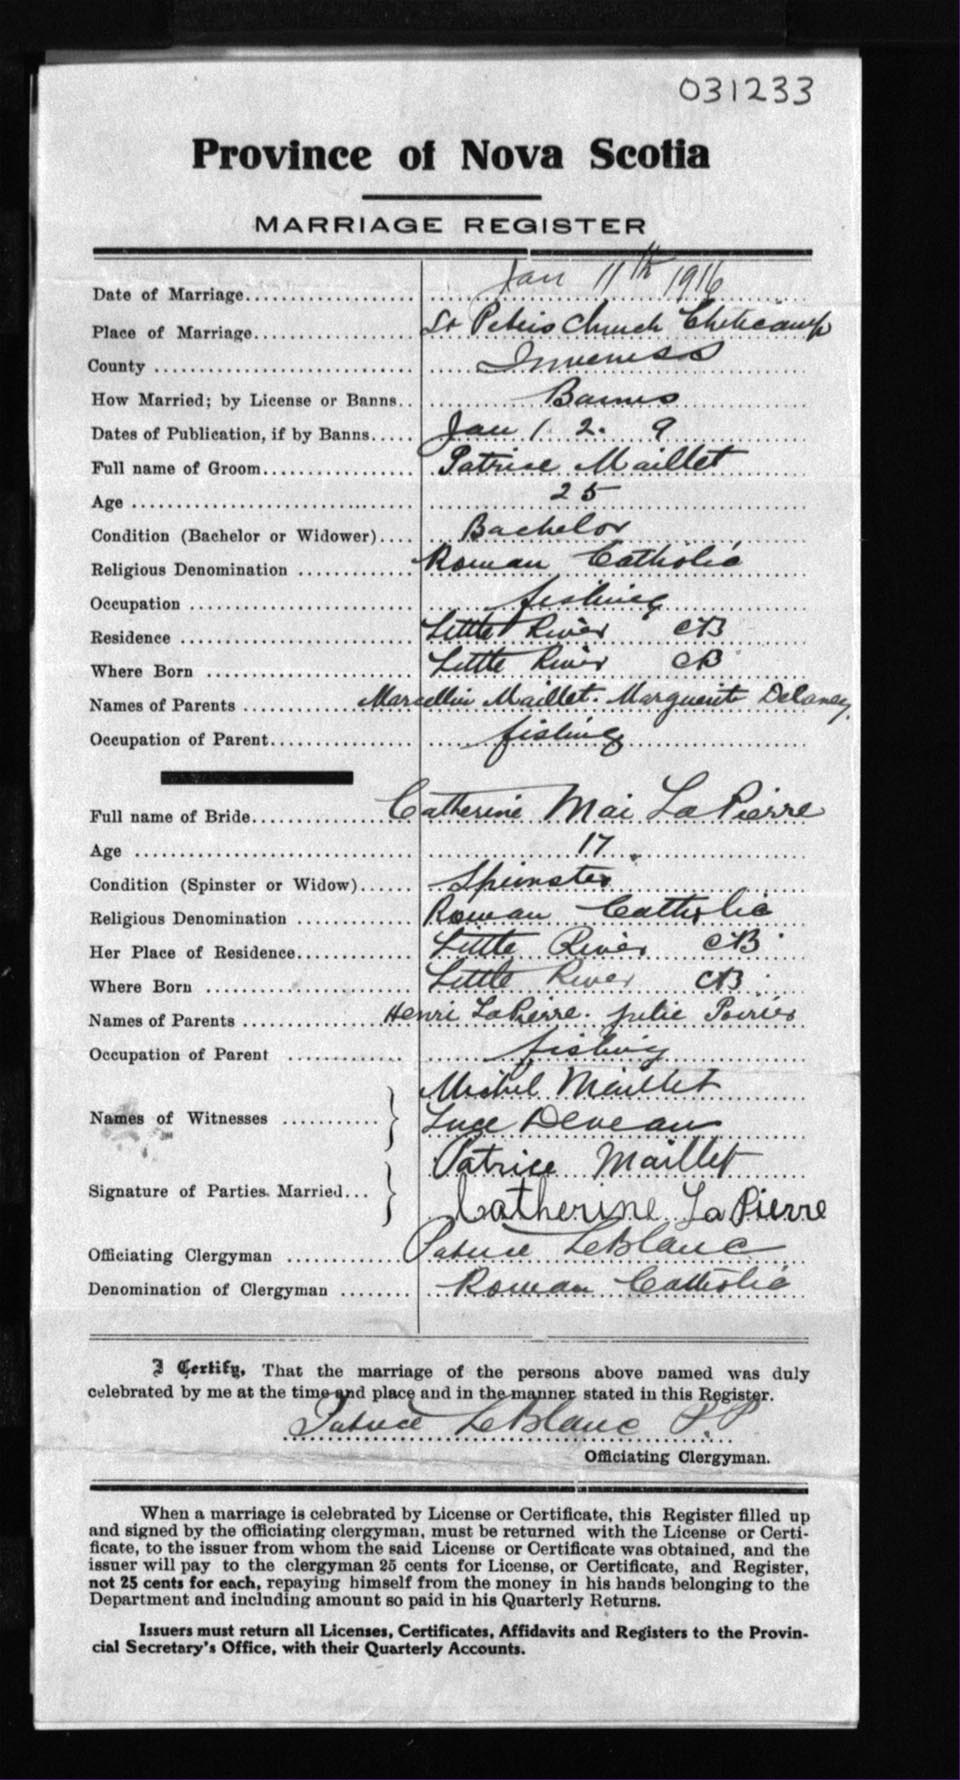 031233
Province of Nova Scotia
MARRIAGE REGISTER
Date of Marriage Jan 11th 1916
Place of Marriage St Peters Church Cheticamp
County Inverness
How Married; by License or Banns Banns
Dates of Publication, if by Banns Jan 1. 2. 9
Full name of Groom Patrice Maillet
Age 25
Condition (Bachelor or Widower) Bachelor
Religious Denomination Roman Catholic
Occupation fishing
Residence Little River CB
Where Born Little River CB
Names of Parents Marcellin Maillet. Marguerite Delaney.
Occupation of Parent fishing
Full name of Bride Catherine Mai LaPierre
Age 17.
Condition (Spinster or Widow) Spinster
Religious Denomination Roman Catholic
Her Place of Residence Little River CB
Where Born Little River CB
Names of Parents Henri LaPierre. Julie Poirier
Occupation of Parent fishing
Names of Witnesses } Michel Maillet
Luce Deveau
Signature of Parties Married } Patrice Maillet
Catherine LaPierre
Officiating Clergyman Patrice LeBlanc
Denomination of Clergyman Roman Catholic
I Certify, That the marriage of the persons above named was duly
celebrated by me at the time and place and in the manner stated in this Register.
Patrice LeBlanc P.P
Officiating Clergyman.
When a marriage is celebrated by License or Certificate, this Register filled up
and signed by the officiating clergyman, must be returned with the License or Certi-
ficate, to the issuer from whom the said License or Certificate was obtained, and the
issuer will pay to the clergyman 25 cents for License, or Certificate, and Register,
not 25 cents for each, repaying himself from the money in his hands belonging to the
Department and including amount so paid in his Quarterly Returns.
Issuers must return all Licenses, Certificates, Affidavits and Registers to the Provin-
cial Secretary's Office, with their Quarterly Accounts.